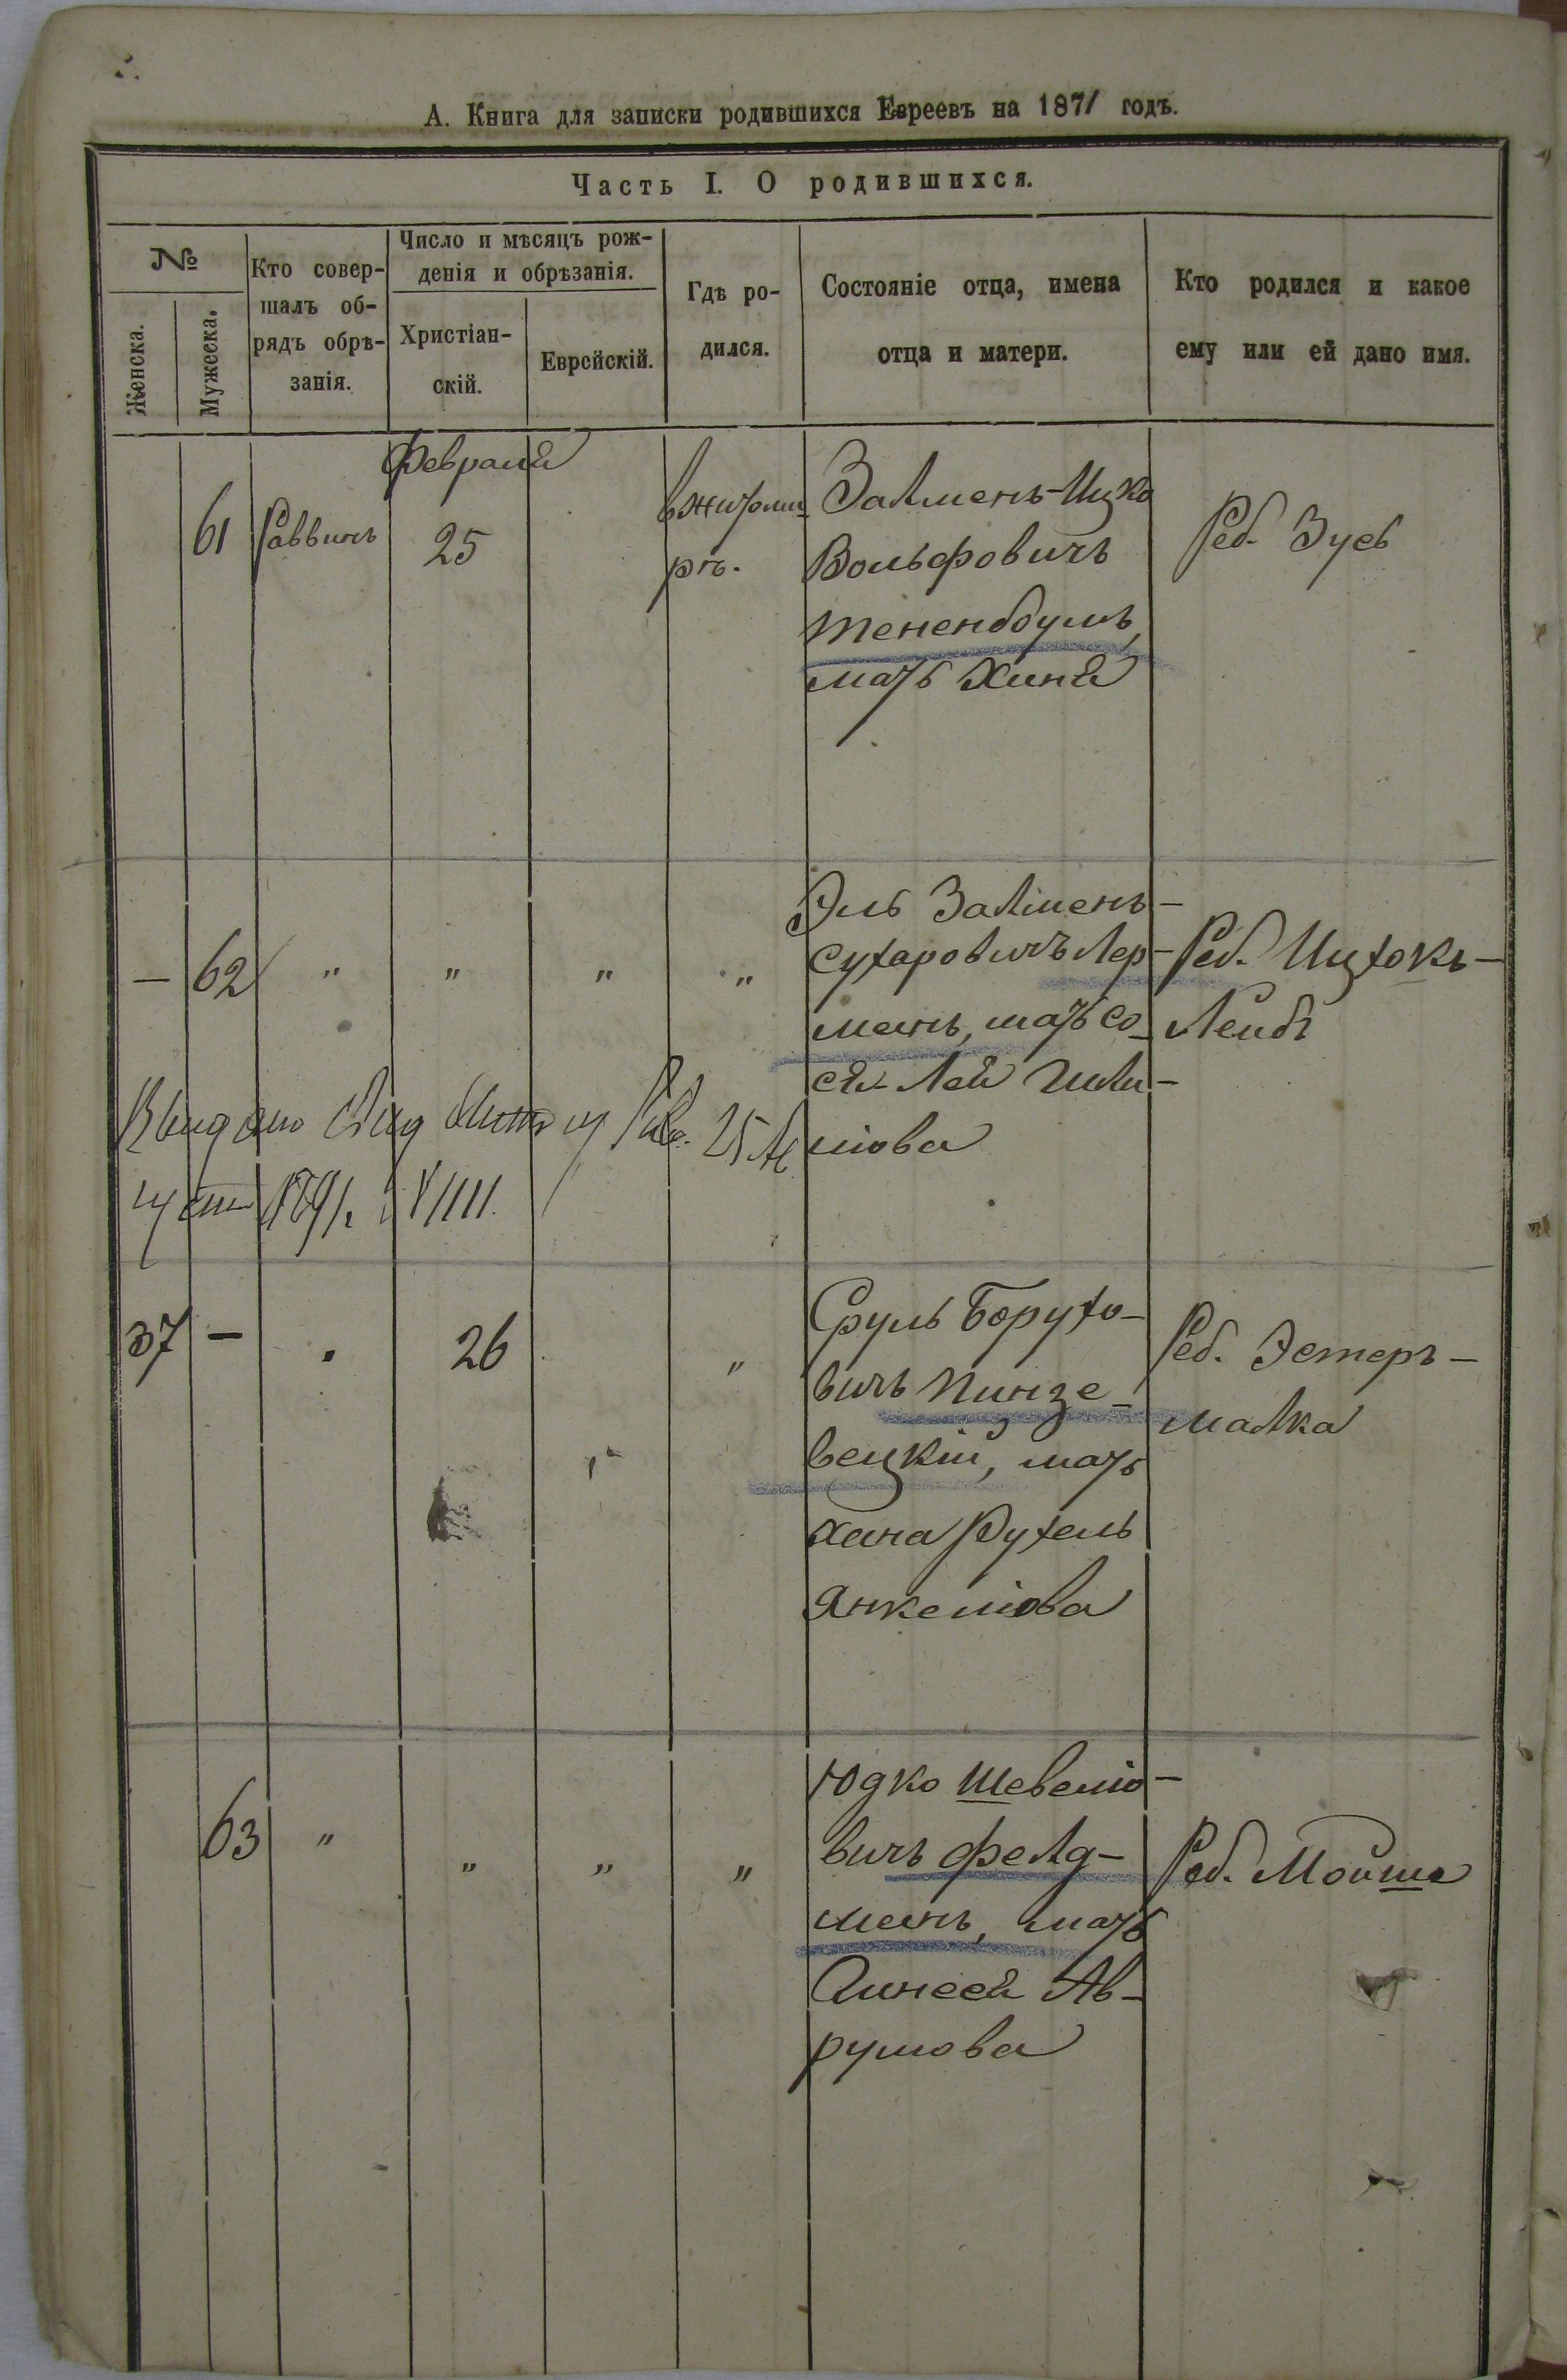 А. Книга для записки родившихся Евреевъ на 1871 годъ.
Часть I. О родившихся.
№
Женска.
Мужеска.
Кто совер-
шалъ об-
рядъ обрѣ-
занія.
Число и мѣсяцъ рож-
денія и обрѣзанія.
Христіан-
скій.
Еврейскій.
Гдѣ ро-
дился.
Состояніе отца, имена
отца и матери.
Кто родился и какое
ему или ей дано имя.
Февраля
61
Раввинъ
25
в жито­ми-
рѣ.
Залмень-Ицко
Вольфовичъ
Тененбоумъ,
мать Хиня
Реб. Зусь
— 62 " " " "
Эль Залмень-
Сухаровичъ Лер-
манъ, мать Со-
ся-Лея Шли-
мова
Реб. Ицхокъ-
Лейбъ
Выдано
25
1891.
37 —
26
"
Сруль Борухо-
вичъ Пинзе-
вецкій, мать
Хана Рухель
Янкеліова
Реб. Эстеръ-
Малка
63 " " " "
Юдко Шевеліо-
вичъ Фелд-
манъ, мать
Ав-
румова
Реб. Мойше